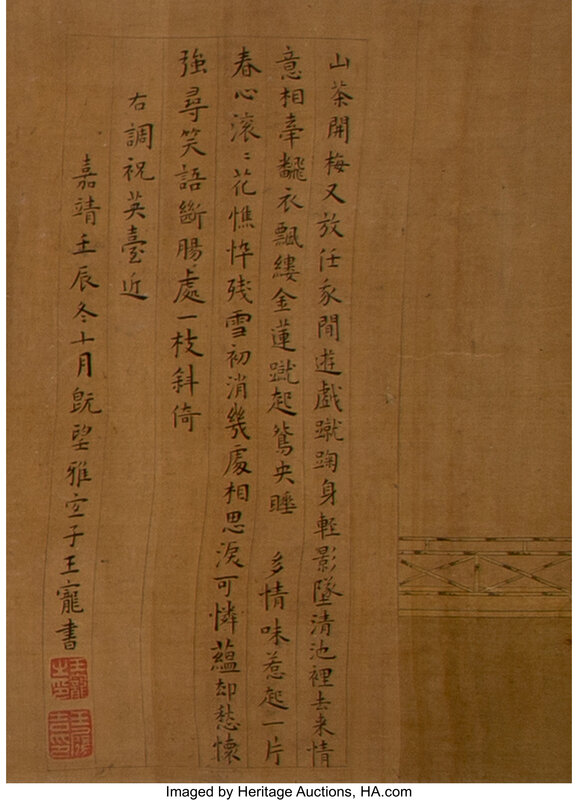 山茶開梅又放任家間遊戲蹴踘身輕影墜清池裡去来情
意相牽翻衣飄縷金蓮蹴起鴛央睡 多情味惹起一片
春心滾〻花憔悴殘雪初消幾處相思淚可憐蘊却愁懷
強尋笑語斷腸處一枝斜倚
右調祝英臺近
嘉靖壬辰冬十月旣望雅宜子王寵書
Imaged by Heritage Auctions, HA.com